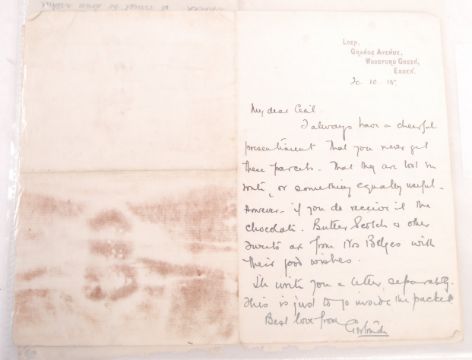 GRANGE AVENUE,
WOODFORD GREEN,
ESSEX.
10. 15.
My dear Cecil.
I always have a cheerful
presentiment that you never get
these parcels. That they are lost in
or something equally useful.
However - if you do receive it the
chocolate. Butter Scotch & other
sweets are from Mrs with
their good wishes.
I'll write you a letter, separately.
This is just to go inside the packet
Best love from